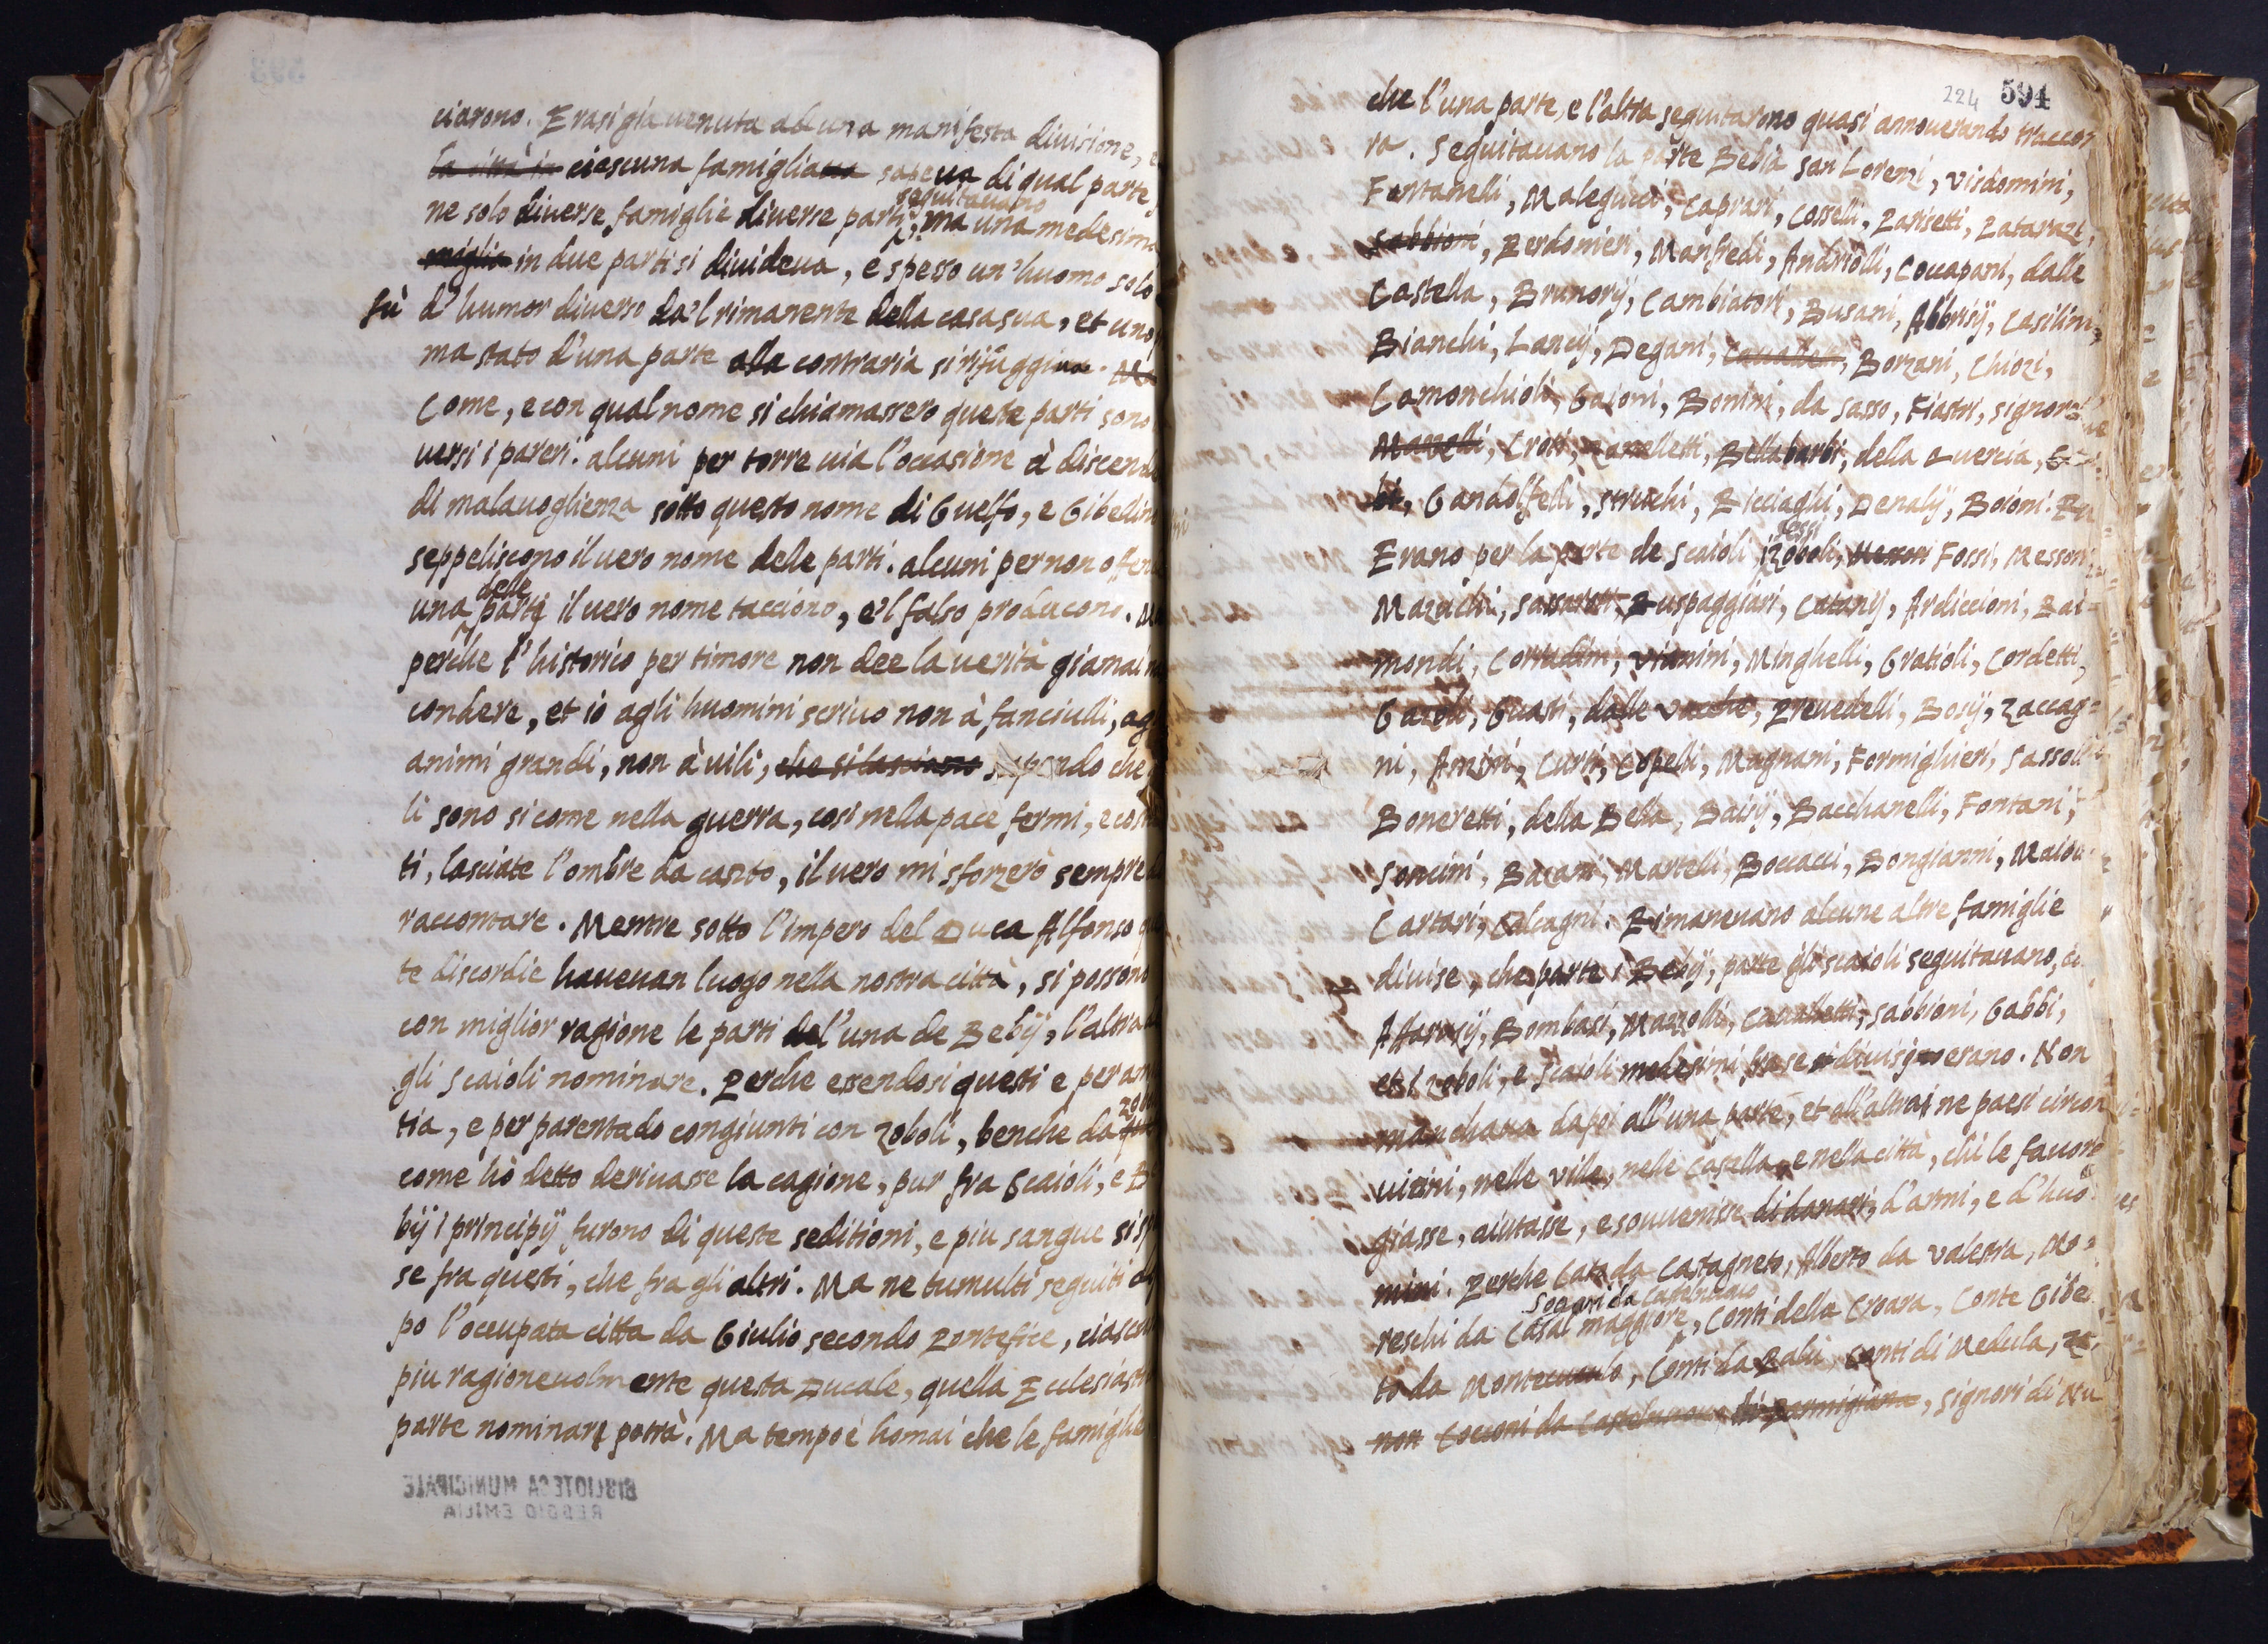 ciarono. Erasi gia venuta ad una manifesta divisione, e
la città in ciascuna famiglia sapeva di qual parte
seguitavano
ne solo diverse famiglie diverse parti, ma una medesima
miglia in due parti si divideva, e spesso un'huomo solo
fù d'humor diverso da'l rimanente della casa sua, et uno
ma stato d'una parte alla contraria si rifuggiva. Ma
Come, e con qual nome si chiamassero queste parti sono
versi i pareri. alcuni per torre via l'occasione à discende
di malavoglienza sotto questo nome di Guelfo, e Gibellin
seppeliscono il vero nome delle parti. alcuni per non offen
delle
una parti il vero nome tacciono, e'l falso producono. Ma
perche l'historico per timore non dee la verità giamai
condere, et io agli huomini scrivo non à fanciulli, ag
animi grandi, non à vili, che si lasciano sapendo che
li sono si come nella guerra, cosi nella pace fermi, e cost
ti, lasciate l'ombre da canto, il vero mi sforzerò sempre
raccontare. Mentre sotto l'impero del Duca Alfonso
te discordie havevan luogo nella nostra città, si possono
con miglior ragione le parti del'una de Bebÿ, l'altra
gli Scaioli nominare. Perche essendosi questi e per am
Zobo
tia, e per parentado congiunti con Zoboli, benche da
come hò detto derivasse la cagione, pur fra Scaioli, e B
bÿ i principÿ furono di queste seditioni, e piu sangue si sp
se fra questi, che fra gli altri. Ma ne tumulti seguiti
po l'occupata citta da Giulio secondo Pontefice, ciascu
piu ragionevolmente questa Ducale, quella Ecclesiasti
parte nominare potrà. Ma tempo è homai che le famiglie
BIBLIOTECA MUNICIPALE
REGGIO EMILIA
224 594
che l'una parte, e l'altra seguitarono quasi annoverando traccor
ra. Seguitavano la parte Bebia San Lorenzi, Visdomini,
Fontanelli, Malegucci, Caprari, Cosselli, Parisetti, Patarazi,
Sabbioni, Perdonieri, Manfredi, Andriolli, Coccapani, dalle
Castella, Brunorÿ, Cambiatori, Busani, Abbrisÿ, Casilini,
Bianchi, Lancÿ, Degani, Cavalletti, Borzani, Chiozi,
Camonchioli, Gaioni, Bonini, da Sasso, Fiastri, Signor
Mazelli, Croti, Zanelletti, Bellabarbi, della Quercia,
bi, Gandolfelli, Struchi, Ricciaghi, Denalÿ, Boioni.
Tossi
Erano per la parte de Scaioli i Zoboli, Messori Fossi, Messori
Mazuchi, Ruspaggiari, Catanÿ, Ardiccioni, Rai=
mondi, Cortadini, Vianini, Minghelli, Gratioli, Cordetti,
Gazoli, Guasti, dalle Vacche, Prevedelli, Bosÿ, Zaccag=
ni, Curti, Copelli, Magnani, Formiglieri, Sassoli
Boneretti, della Bella, Baisÿ, Bacchanelli, Fontani,
Soncini, Martelli, Boccacci, Bongianni,
Cartari, Calcagni. Rimanevano alcune altre famiglie
divise, che parte i Bebÿ, parte gli scaioli seguitavano,
Affarosÿ, Bombasi, Mazzolli, Cavalletti, Sabbioni, Gabbi,
et i Zoboli, e Scaioli medesimi fra se divisi erano. Non
manchava dapoi all'una parte, et all'altra ne paesi circon
vicini, nelle ville, nelle castella, e nella città, chi le favoreg
giasse, aiutasse, e sovvenisse di danari, d'armi, e d'huo
mini. Perche Cato da Castagneto, Alberto da Valestra, Mo=
Sogari da Castelnuovo
reschi da Casal maggiore, Conti della Croara, Conte Gibe
to da Montecuculo, Conti da Palù, Conti di Medula,
non Cocconi da Castelnuovo di Parmigiana, Signori di Nu